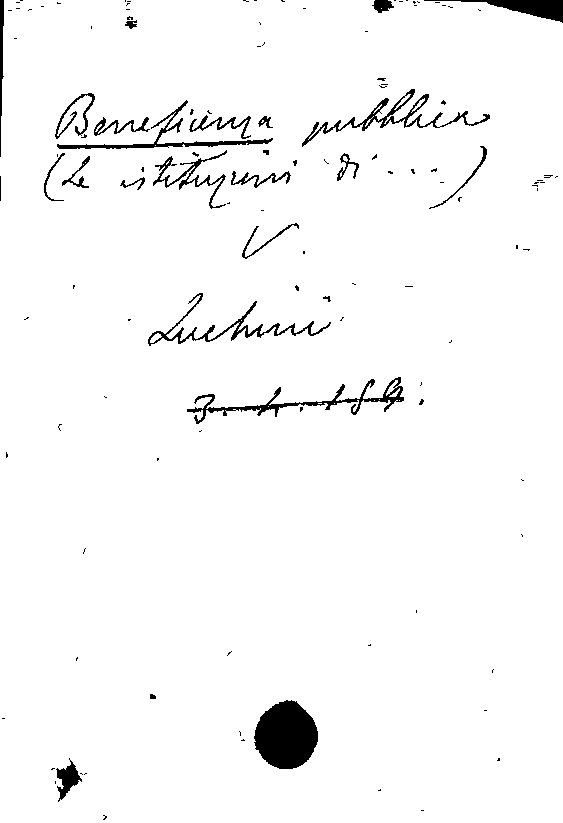 Beneficienza pubblica
(Le istituzioni di ...)
V.
Luchini
3. 1. 189.